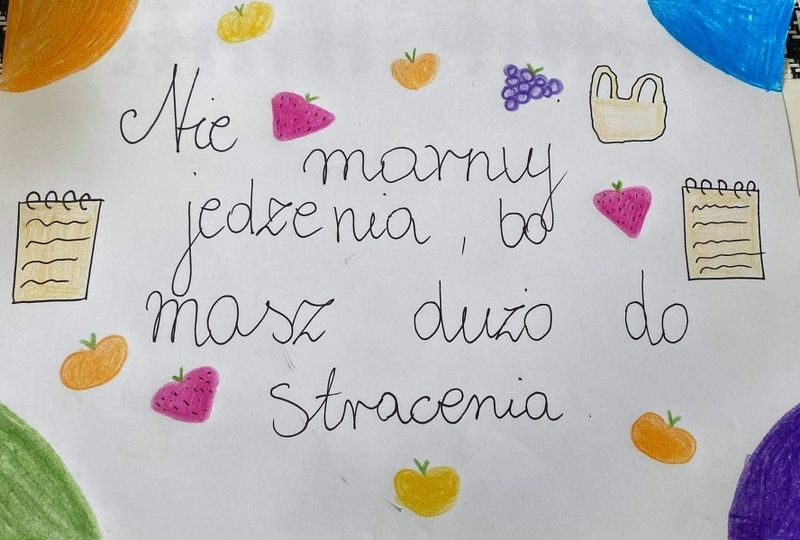 Nie marnuj
jedzenia, bo
masz dużo do
stracenia.